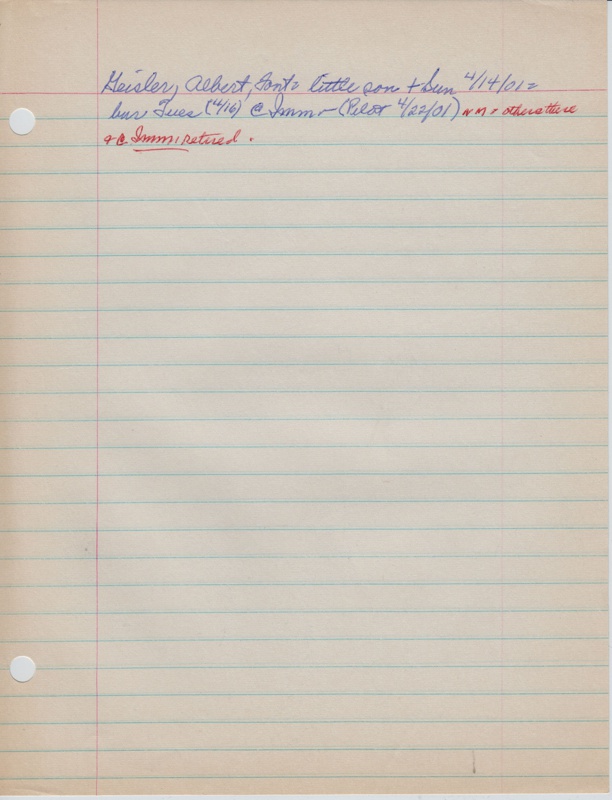 Geisler, Albert, Font= little son + Sun 4/14/01=
bur Tues (4/16) @ Imm - (Pilot 4/22/01) NM = others there
+ @ Imm, retired.